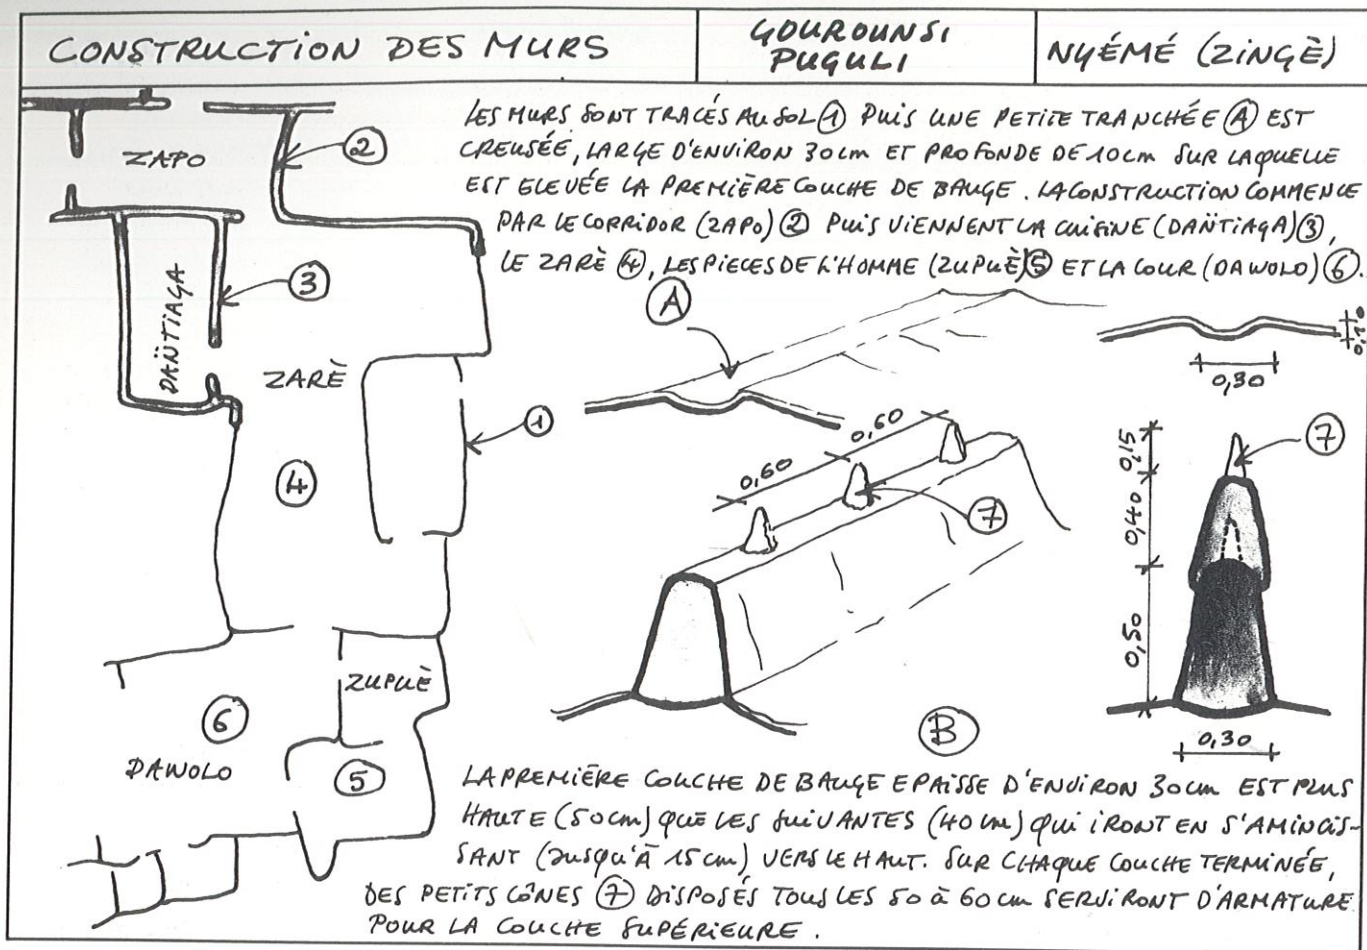 CONSTRUCTION DES MURS
GOUROUNSI
PUGULI
NYÉMÉ (ZINGÈ)
LES MURS SONT TRACÉS AU SOL ① PUIS UNE PETITE TRANCHÉE Ⓐ EST
CREUSÉE, LARGE D'ENVIRON 30cm ET PROFONDE DE 10cm SUR LAQUELLE
EST ELEVÉE LA PREMIÈRE COUCHE DE BAUGE. LA CONSTRUCTION COMMENCE
PAR LE CORRIDOR (ZAPO) ② PUIS VIENNENT LA CUISINE (DAÑTIAGA) ③,
LE ZARÈ ④, LES PIECES DE L'HOMME (ZUPUÈ) ⑤ ET LA COUR (DAWOLO) ⑥.
ZAPO
②
DAÑTIAGA
③
ZARÈ
①
④
ZUPUÈ
⑥
DAWOLO
⑤
Ⓐ
0,10
0,30
0,60
0,60
⑦
0,15
⑦
0,40
0,50
0,30
Ⓑ
LA PREMIÈRE COUCHE DE BAUGE EPAISSE D'ENVIRON 30cm EST PLUS
HAUTE (50cm) QUE LES SUIVANTES (40cm) QUI IRONT EN S'AMINCIS-
SANT (JUSQU'À 15cm) VERS LE HAUT. SUR CHAQUE COUCHE TERMINÉE,
DES PETITS CÔNES ⑦ DISPOSÉS TOUS LES 50 à 60cm SERVIRONT D'ARMATURE
POUR LA COUCHE SUPÉRIEURE.